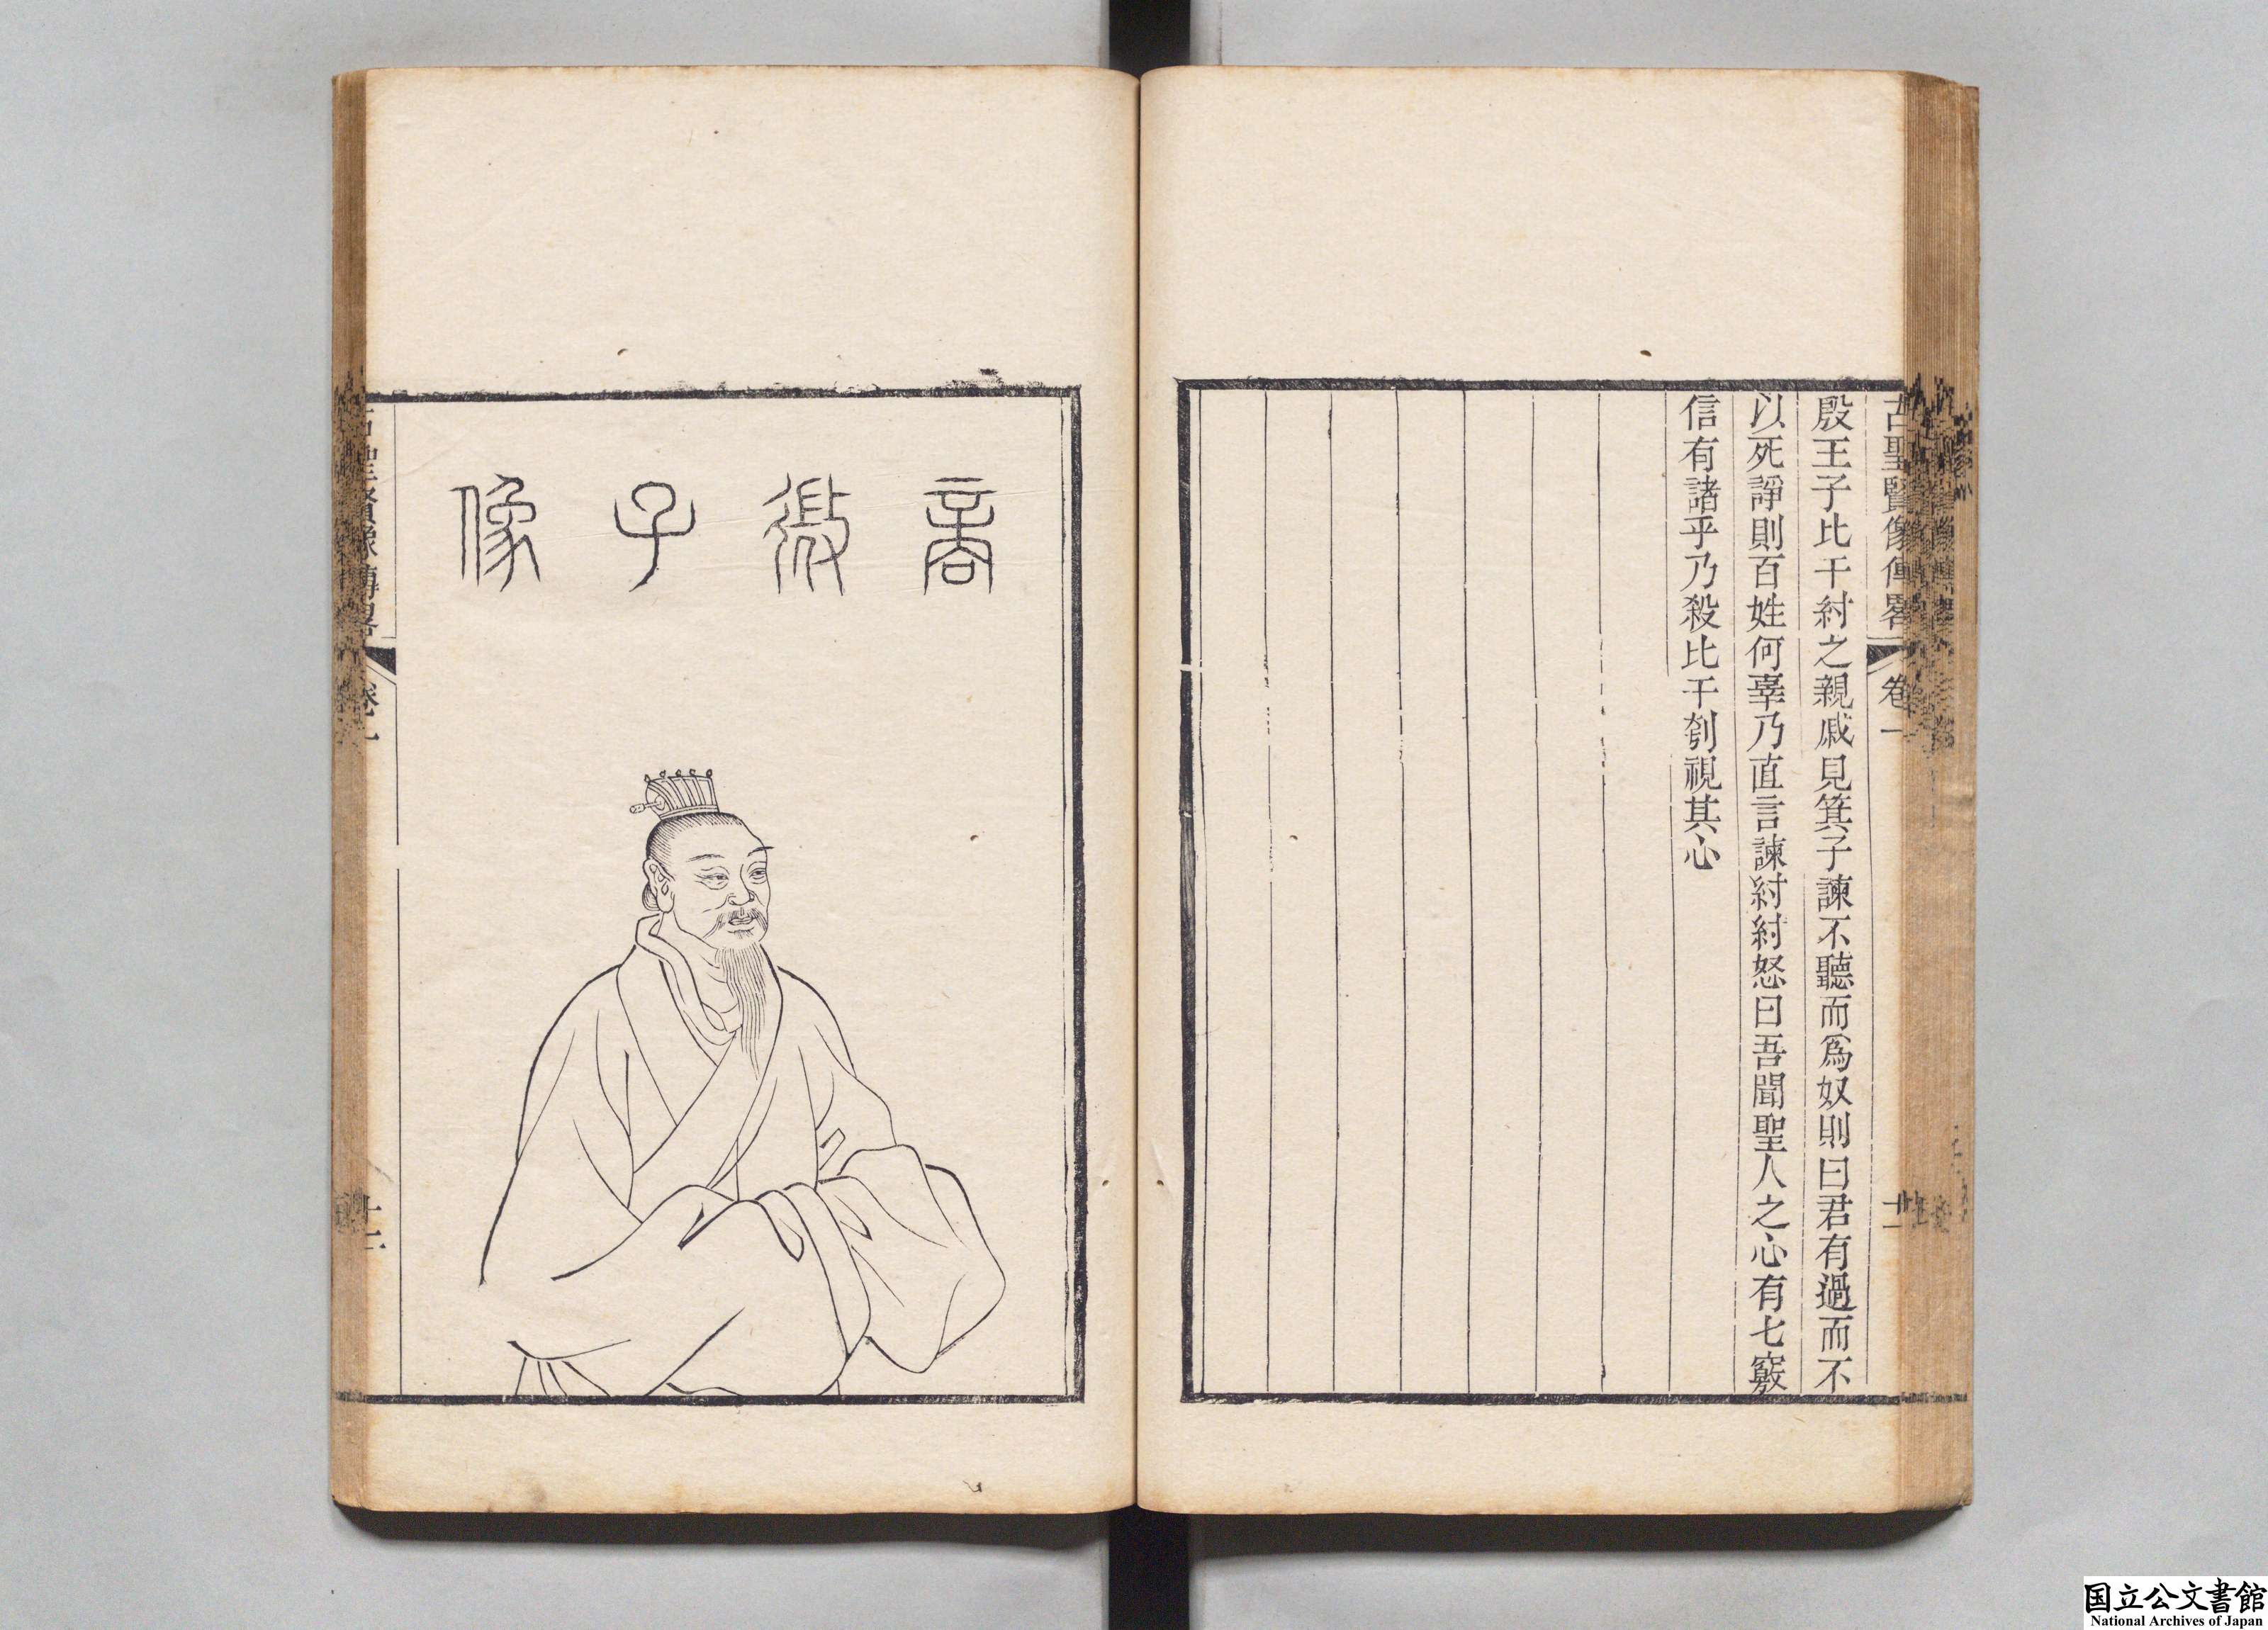 古聖賢像傳畧 卷一
殷王子比干紂之親戚見箕子諫不聽而為奴則曰君有過而不
以死諍則百姓何辜乃直言諫紂紂怒曰吾聞聖人之心有七竅
信有諸乎乃殺比干刳視其心
商微子像
國立公文書館
National Archives of Japan